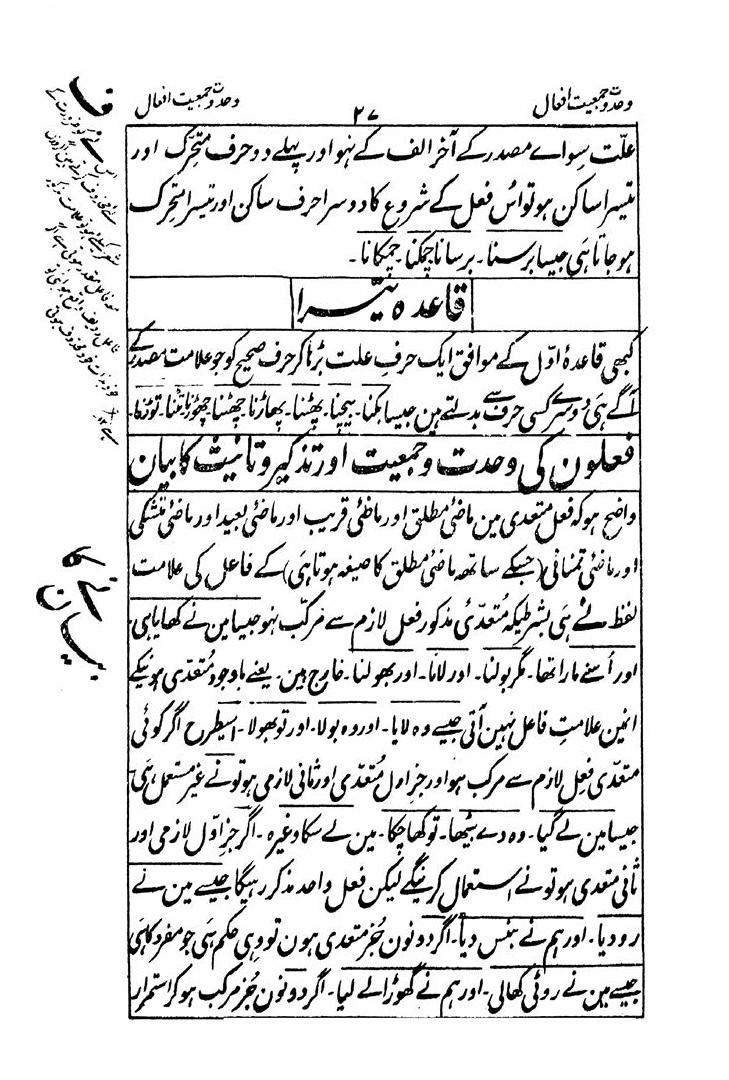 وحدت وجمعیت افعال
۲۷
وحدت وجمعیت افعال
علّت سِواے مصدر کے آخر الف کے نہو اور پہلے دو حرف متحرّک اور
تیسرا ساکن ہو تو اُس فعل کے شروع کا دوسرا حرف ساکن اور تیسرا متحرک
ہو جاتا ہی جیسا برسنا۔ برسانا چمکنا۔ چمکانا۔
قاعدہ تیسرا
کبھی قاعدۂ اوّل کے موافق ایک حرفِ علت بڑہا کر حرف صحیح کو جو علامت مصدر کے
آگے ہی دُوسرے کسی حرف سے بدلتے ہین جیسا بکنا۔ بیچنا۔ پھٹنا۔ پھاڑنا۔ چھٹنا۔ چھوڑنا ٹوٹنا۔ توڑنا۔
فعلون کی وحدت وجمعیت اور تذکیر وتانیث کا بیان
واضح ہو کہ فعل متعدی مین ماضیٔ مطلق اور ماضیٔ قریب اور ماضیٔ بعید اور ماضیٔ متشکی
اور ماضیٔ تمنائی (جسکے ساتھ ماضیٔ مطلق کا صیغہ ہوتا ہی) کے فاعل کی علامت
لفظ نے ہی بشرطیکہ مُتعدّیٔ مذکور فعل لازم سے مرکّب نہو جیسا مین نے کھایا ہی
اور اُسنے مارا تھا۔ مگر بولنا۔ اور لانا۔ اور بھولنا۔ خارج ہین۔ یعنے باوجود مُتعدّی ہونیکے
انمین علامتِ فاعل نہین آتی جیسے وہ لایا۔ اور وہ بولا۔ اور تو بھولا۔ اسیطرح اگر کوئی
متعدّی فعلِ لازم سے مرکب ہو اور جزِ اول مُتعدّی اور ثانی لازمی ہو تو نے غیر مستعمل ہی
جیسا مین لے گیا۔ وہ دے بیٹھا۔ تو کھا چکا۔ مین لے سکا وغیرہ۔ اگر جزِ اوّل لازمی اور
ثانی متعدی ہو تو نے استعمال کرینگے لیکن فعل واحد مذکر رہیگا جیسے مین نے
رو دیا۔ اور ہم نے ہنس دیا۔ اگر دونون جُز متعدی ہون تو وہی حکم ہی جو مفرد کا ہی
جیسے مین نے روٹی کھالی۔ اور ہم نے گھوڑا لے لیا۔ اگر دونون جُز مرکب ہو کر استمرار
نے کا
بیان